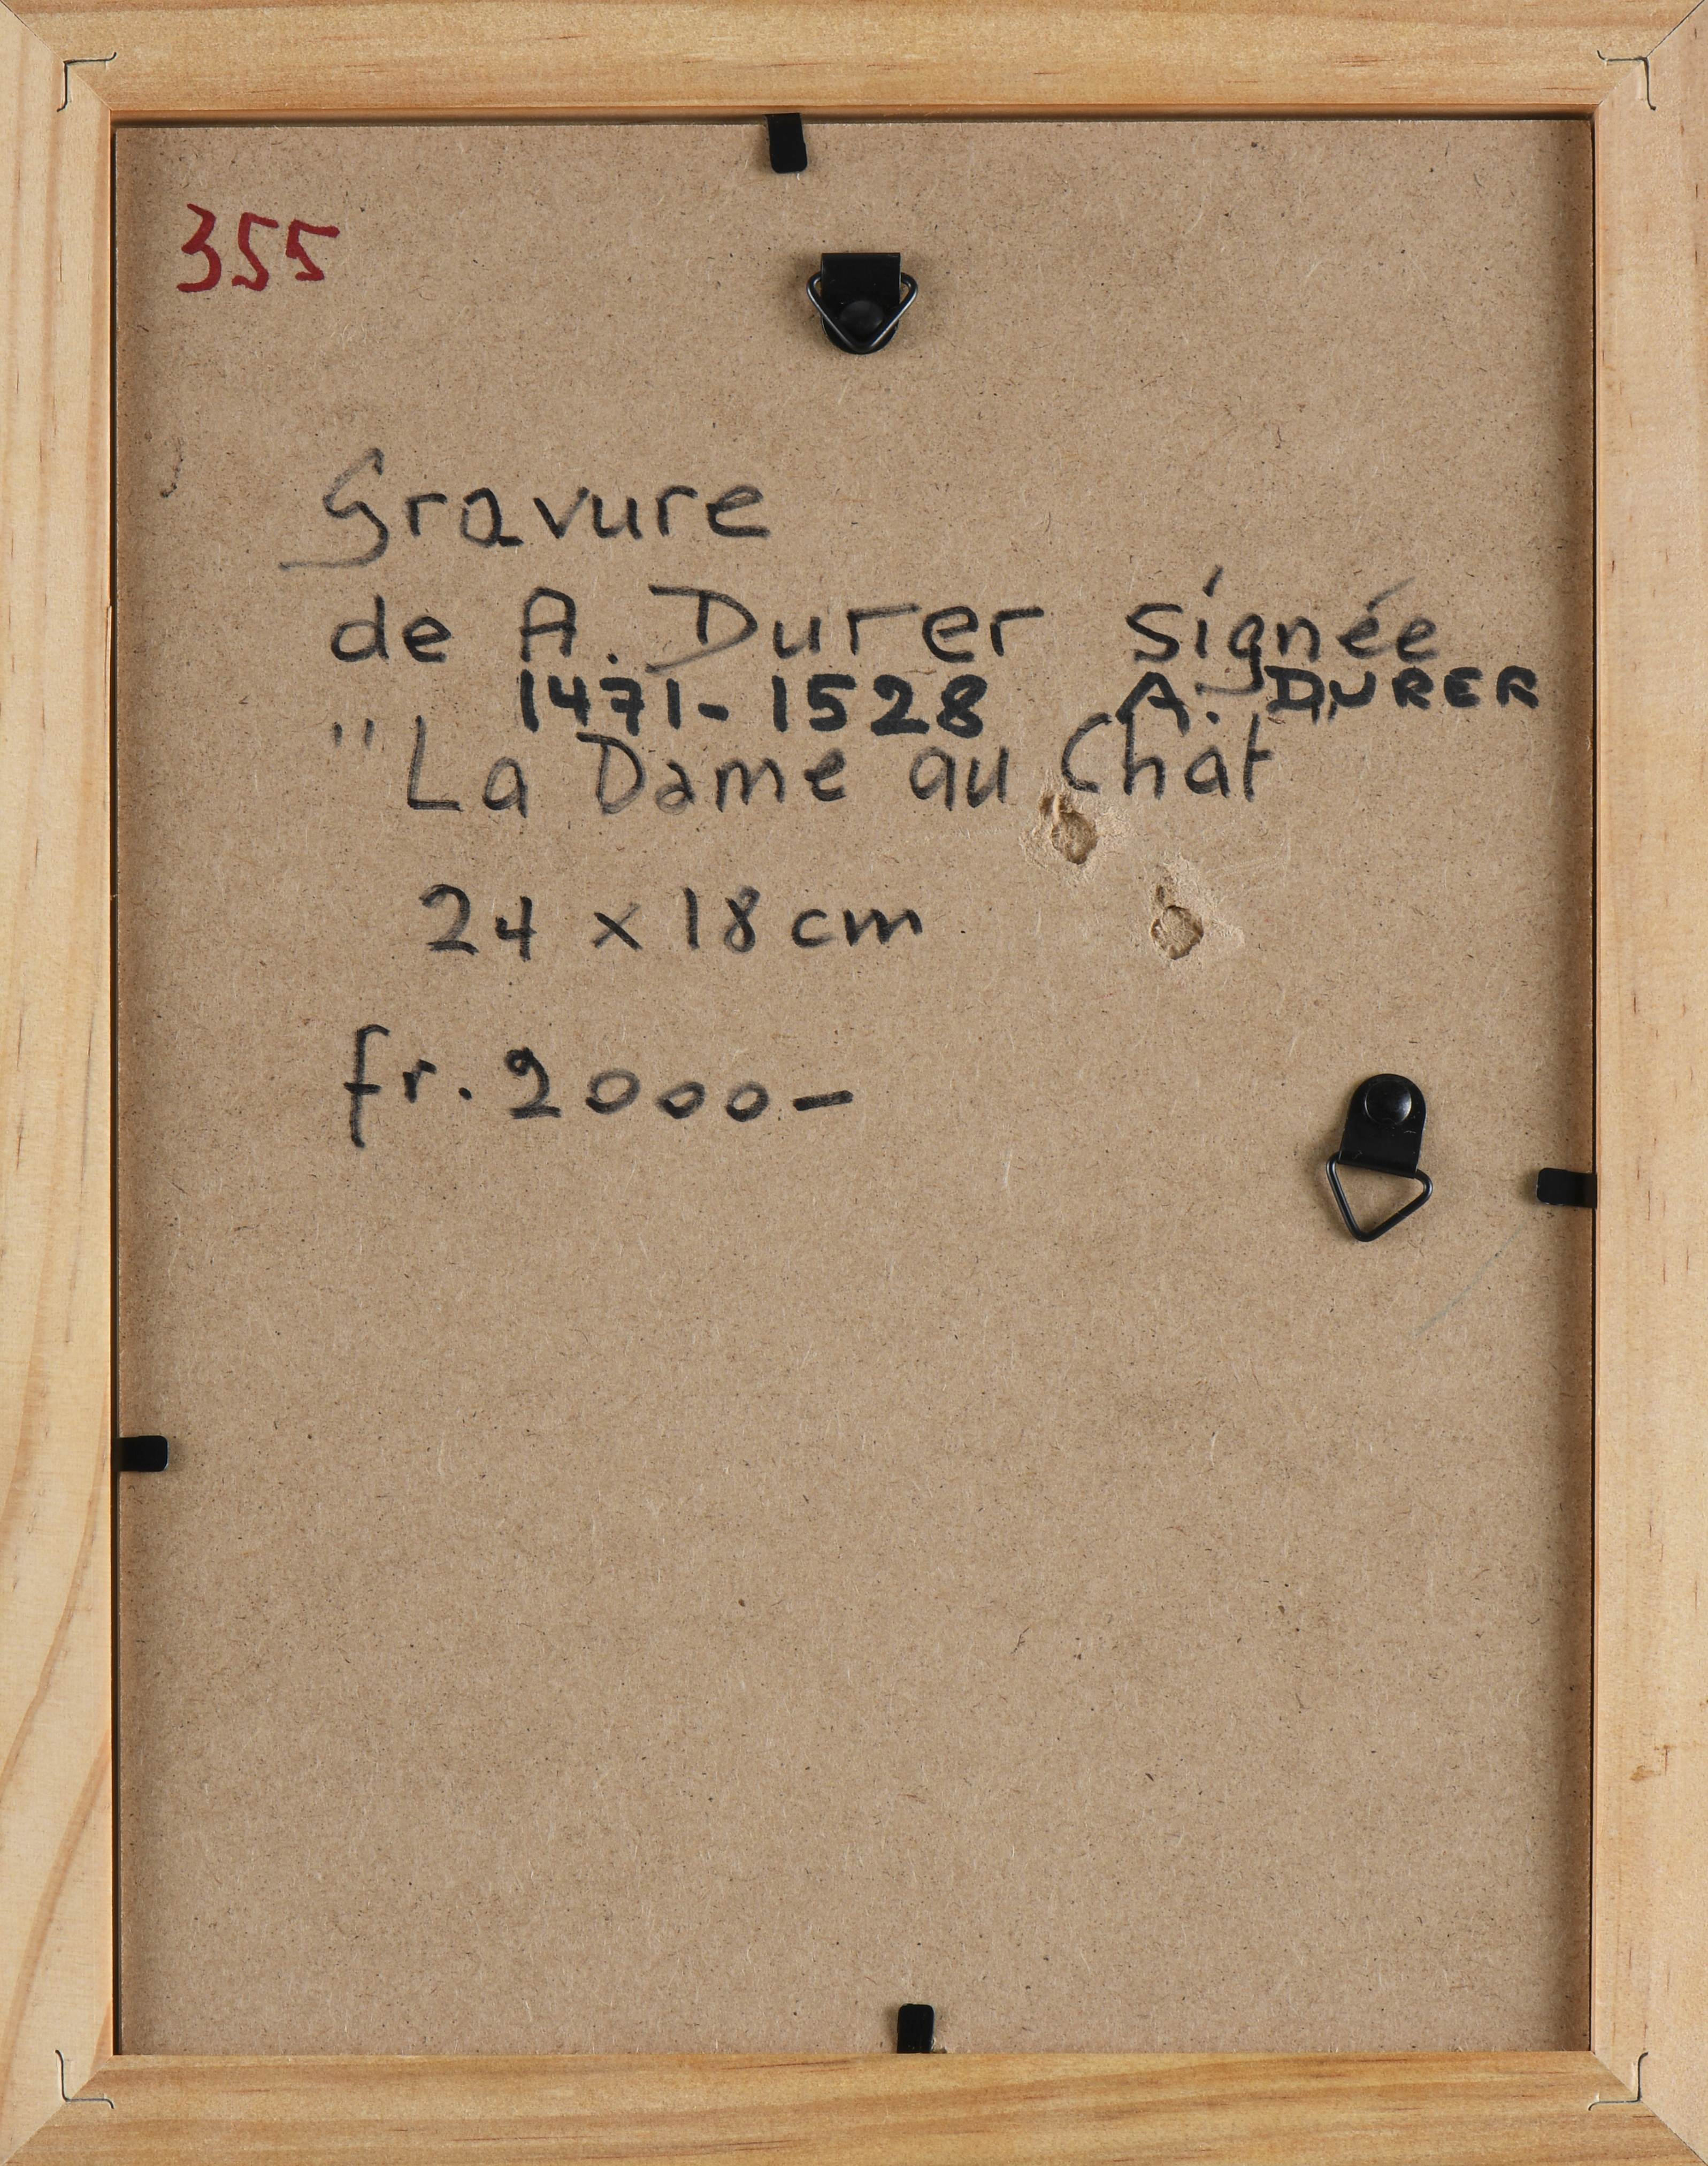 355
Gravure
de A. Durer signée
1471-1528 A. DURER
"La Dame au Chat
24 x 18 cm
fr. 2000-